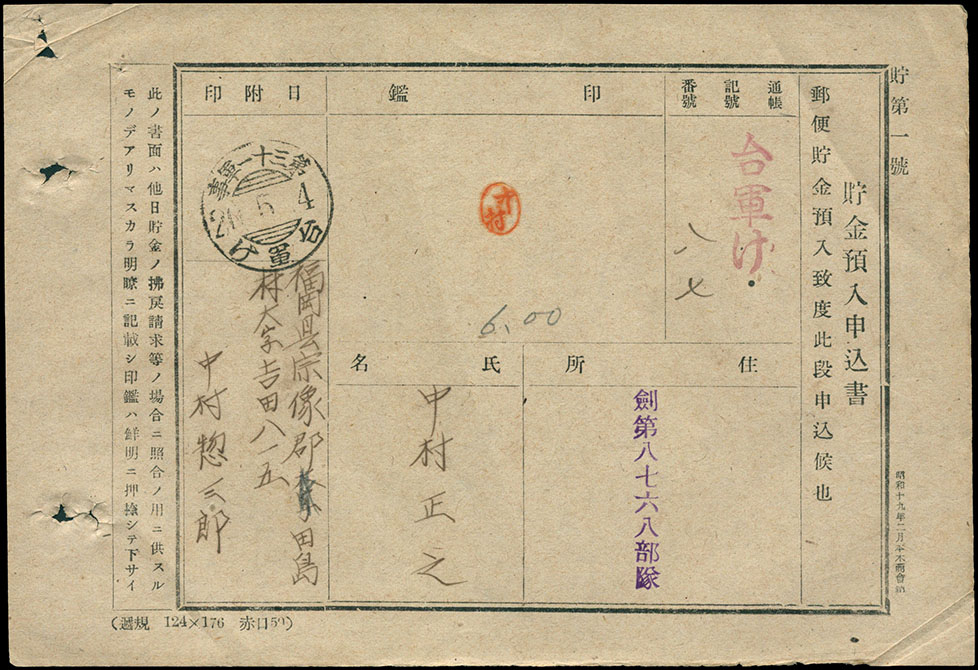 貯第一號
貯金預入申込書
郵便貯金預入致度此段申込候也
昭和十九年二月
通帳
記號
番號
台軍け
八七
印鑑
中村
6.00
日附印
第三十一軍事
4
5
台軍け
住所
劍第八七六八部隊
氏名
中村正之
福岡县宗像郡田島
村大字吉田八一五
中村惣三郎
此ノ書面ハ他日貯金ノ拂戾請求等ノ場合ニ照合ノ用ニ供スル
モノデアリマスカラ明瞭ニ記載シ印鑑ハ鮮明ニ押捺シテ下サイ
(遞規 124×176 赤口50)